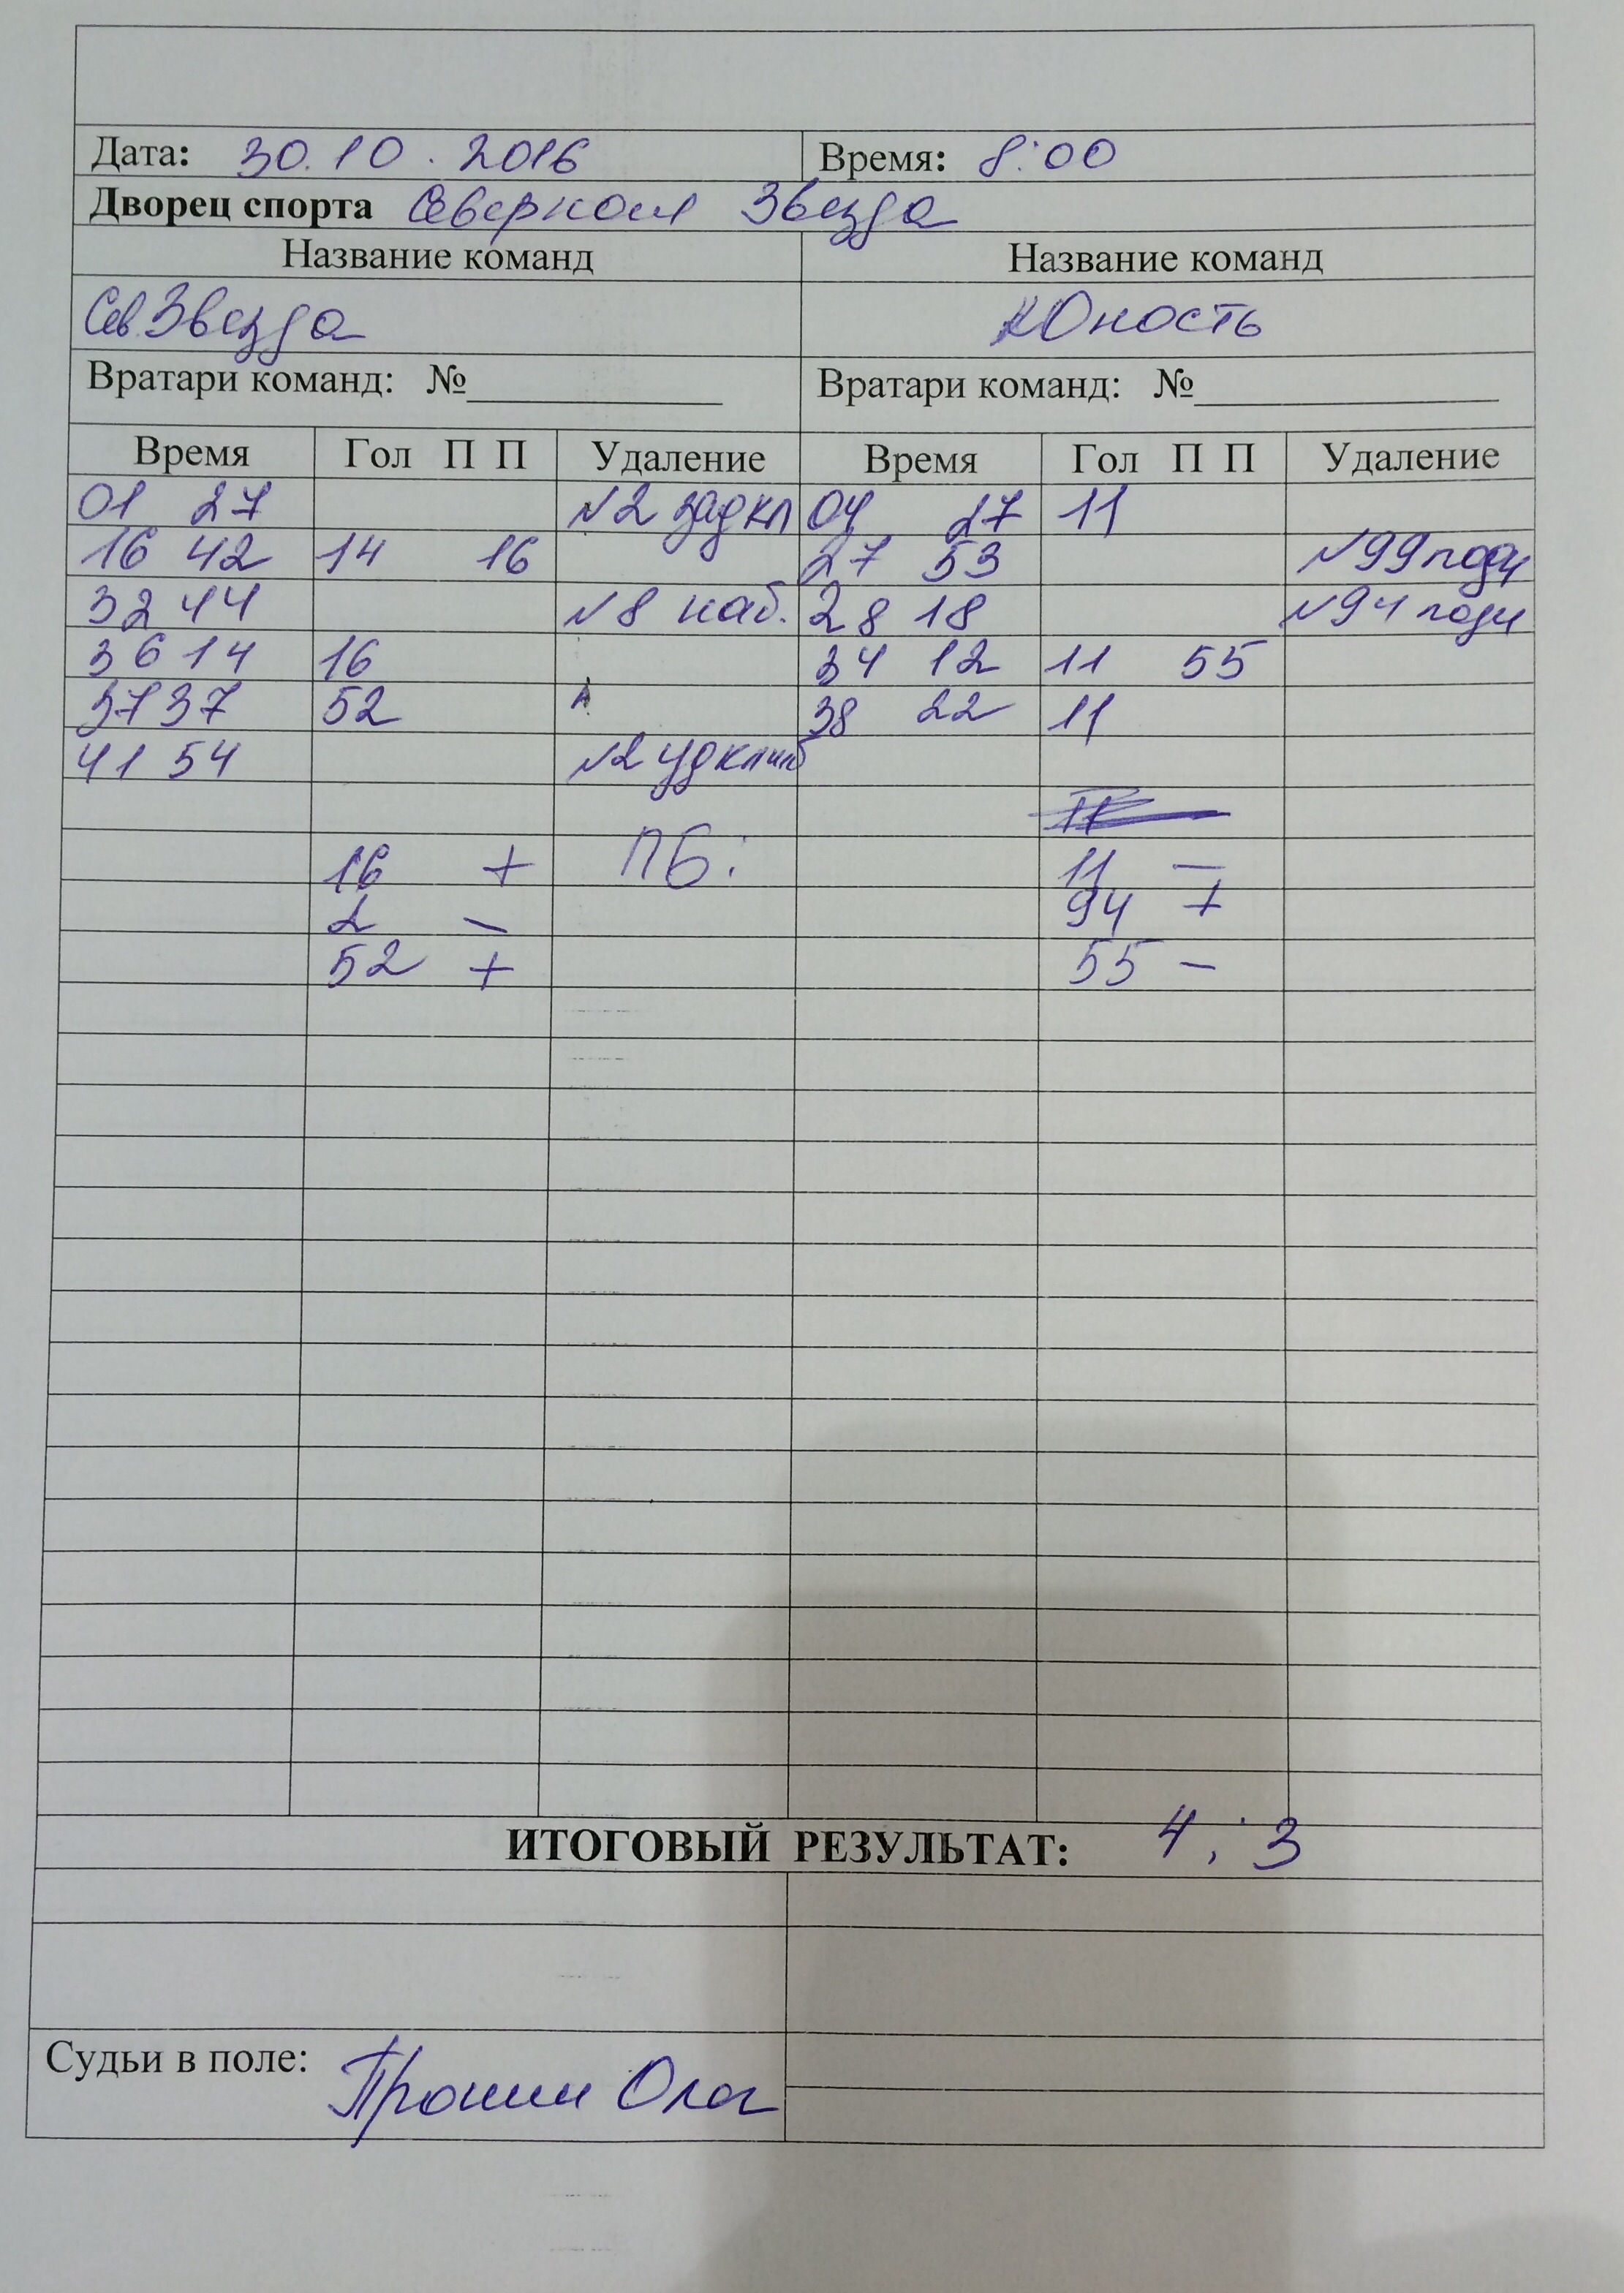 Дата: 30.10.2016 Время: 8:00
Дворец спорта Северная Звезда
Название команд Название команд
Сев Звезда Юность
Вратари команд: №____________ Вратари команд: №______________
Время Гол П П Удаление Время Гол П П Удаление
01 27 №2 зад кл 04 27 11
16 42 14 16 27 53 №99 подн
32 44 №8 наб. 28 18 №94 подн
36 14 16 34 12 11 55
37 37 52 38 22 11
41 54 №2 уд клюш
16 + ПБ: 11 −
2 − 94 +
52 + 55 −
ИТОГОВЫЙ РЕЗУЛЬТАТ: 4 : 3
Судьи в поле: Прошин Олег